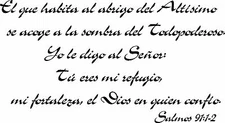 El que habita al abrigo del Altísimo
se acoge a la sombra del Todopoderoso.
Yo le digo al Señor:
Tú eres mi refugio,
mi fortaleza, el Dios en quien confío.
Salmos 91:1-2